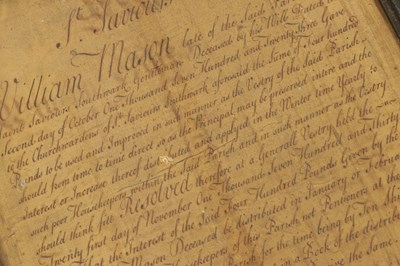 St. Saviours
William Mason late of the Said Par
Saint Saviours Southwark Gentleman Deceased by his Will Dated
Second day of October One Thousand Seven Hundred and Twenty three Gave
to the Churchwardens of St. Saviours Southwark aforesaid the Sume of Four hundred
Pounds to be used and Improved in such manner as the Vestry of the Said Parish
should from time to time direct so as the Principal may be preserved intire and the
Interest or Increase thereof distributed and applyed in the Winter time Yearly to
such poor Housekeepers within the Said Parish and in such manner as the Vestry
should think fitt Resolved therefore at a Generall Vestry held the
Twenty first day of November One Thousand Seven Hundred and Thirty
that the Interest of the Said Four Hundred Pounds Given by the
Mason Deceased be distributed in January or Februa
keepers of this Parish not Pentioners at the
for the time being by Ten Shi
in a Book of the distribu
ve the Same.